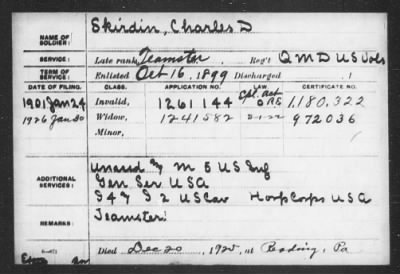 NAME OF SOLDIER: Skirdin, Charles D
SERVICE: Late rank, Teamster Reg't Q M D U S Vols
TERM OF SERVICE: Enlisted Oct 16, 1899 Discharged , 1
DATE OF FILING. CLASS. APPLICATION NO. LAW. CERTIFICATE NO.
1901 Jan 24 Invalid, 1261144 Act 1,180,322
1926 Jan 30 Widow, 1241582 972036
Minor,
ADDITIONAL SERVICES: Unassd M 5 US
Gen Ser U S A
2 US Cav Hosp Corps U S A
REMARKS: Teamster
Died Dec 20, 1925, at Reading, Pa